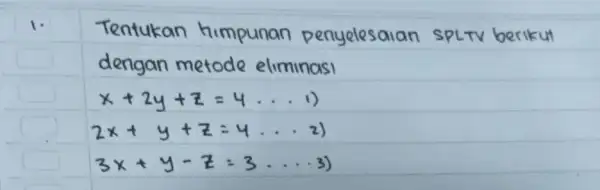 1. Tentukan himpunan penyelesaian SPLTV berikut
dengan metode eliminasi
x + 2y + z = 4 . . . 1)
2x + y + z = 4 . . . 2)
3x + y - z = 3 . . . . 3)